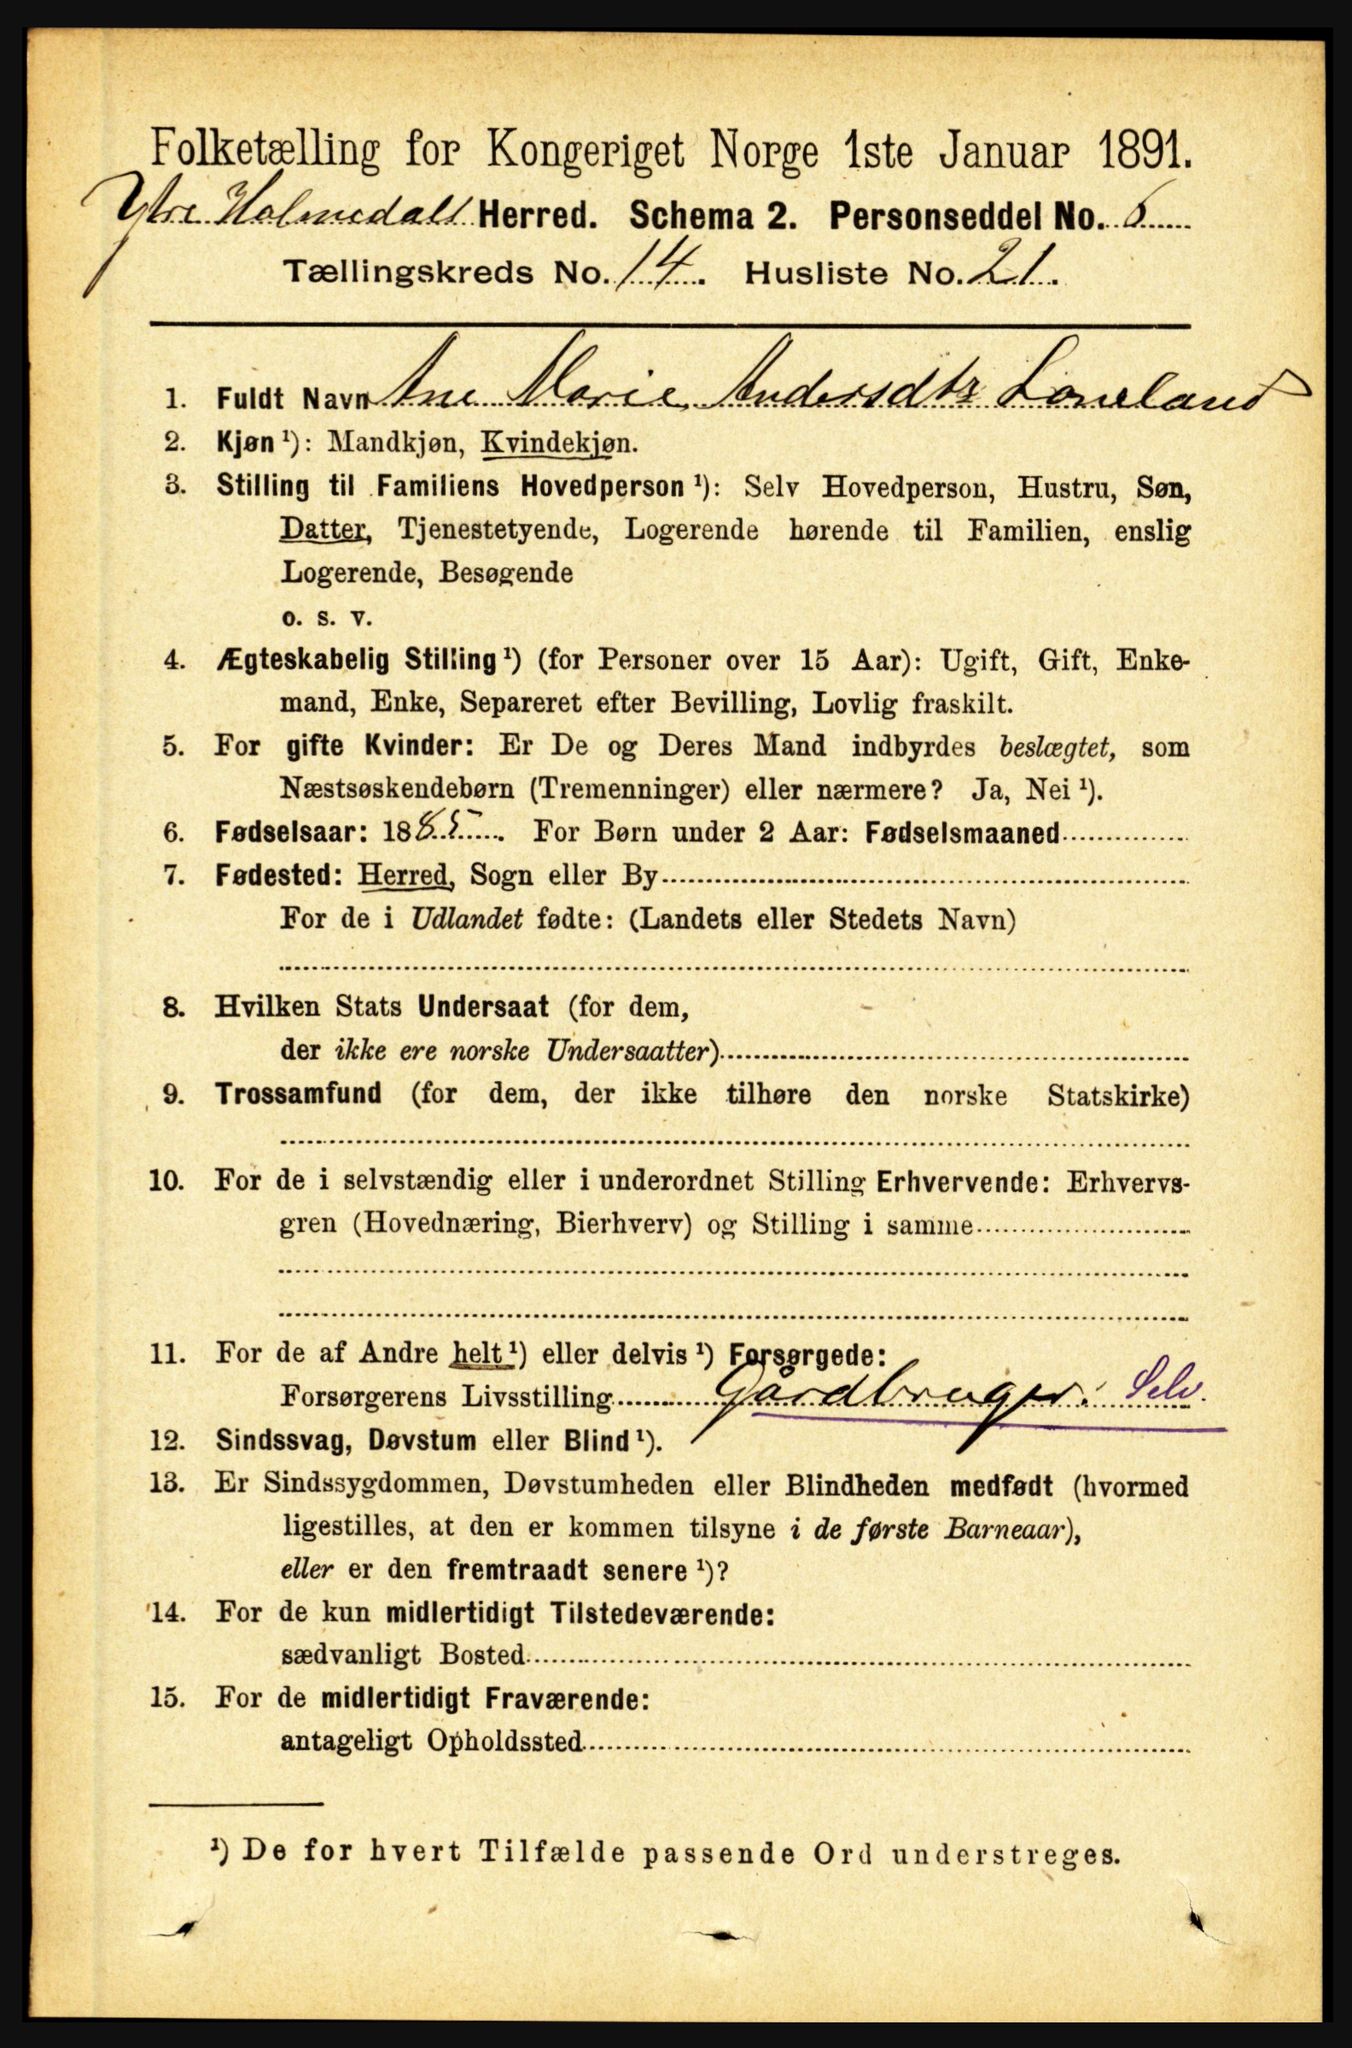 Folketælling for Kongeriget Norge 1ste Januar 1891.
Ytre Holmedals Herred. Schema 2. Personseddel No. 6
Tællingskreds No. 14. Husliste No. 21.
1. Fuldt Navn Ane Marie Andersdtr Loneland
2. Kjøn ¹): Mandkjøn, Kvindekjøn.
3. Stilling til Familiens Hovedperson ¹): Selv Hovedperson, Hustru, Søn,
Datter, Tjenestetyende, Logerende hørende til Familien, enslig
Logerende, Besøgende
o. s. v.
4. Ægteskabelig Stilling ¹) (for Personer over 15 Aar): Ugift, Gift, Enke-
mand, Enke, Separeret efter Bevilling, Lovlig fraskilt.
5. For gifte Kvinder: Er De og Deres Mand indbyrdes beslægtet, som
Næstsøskendebørn (Tremenninger) eller nærmere? Ja, Nei ¹).
6. Fødselsaar: 1885. For Børn under 2 Aar: Fødselsmaaned
7. Fødested: Herred, Sogn eller By
For de i Udlandet fødte: (Landets eller Stedets Navn)
8. Hvilken Stats Undersaat (for dem,
der ikke ere norske Undersaatter)
9. Trossamfund (for dem, der ikke tilhøre den norske Statskirke)
10. For de i selvstændig eller i underordnet Stilling Erhvervende: Erhvervs-
gren (Hovednæring, Bierhverv) og Stilling i samme
11. For de af Andre helt ¹) eller delvis ¹) Forsørgede:
Forsørgerens Livsstilling Gårdbruger. Selv.
12. Sindssvag, Døvstum eller Blind ¹).
13. Er Sindssygdommen, Døvstumheden eller Blindheden medfødt (hvormed
ligestilles, at den er kommen tilsyne i de første Barneaar),
eller er den fremtraadt senere ¹)?
14. For de kun midlertidigt Tilstedeværende:
sædvanligt Bosted
15. For de midlertidigt Fraværende:
antageligt Opholdssted
¹) De for hvert Tilfælde passende Ord understreges.